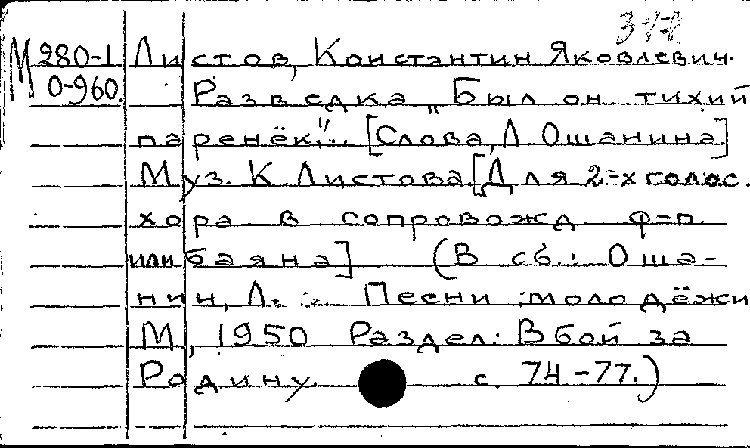 М 280-1 Листов, Константин Яковлевич.
0-960. Разведка „Был он тихий
паренёк"... [Слова Л Ошанина]
Муз. К Листова. [Для 2-х голос.
хора в сопровожд ф-п.
или баяна] (В сб.: Оша-
нин, Л. Песни молодёжи
М, 1950 Раздел: В бой за
Родину. с. 74-77.)